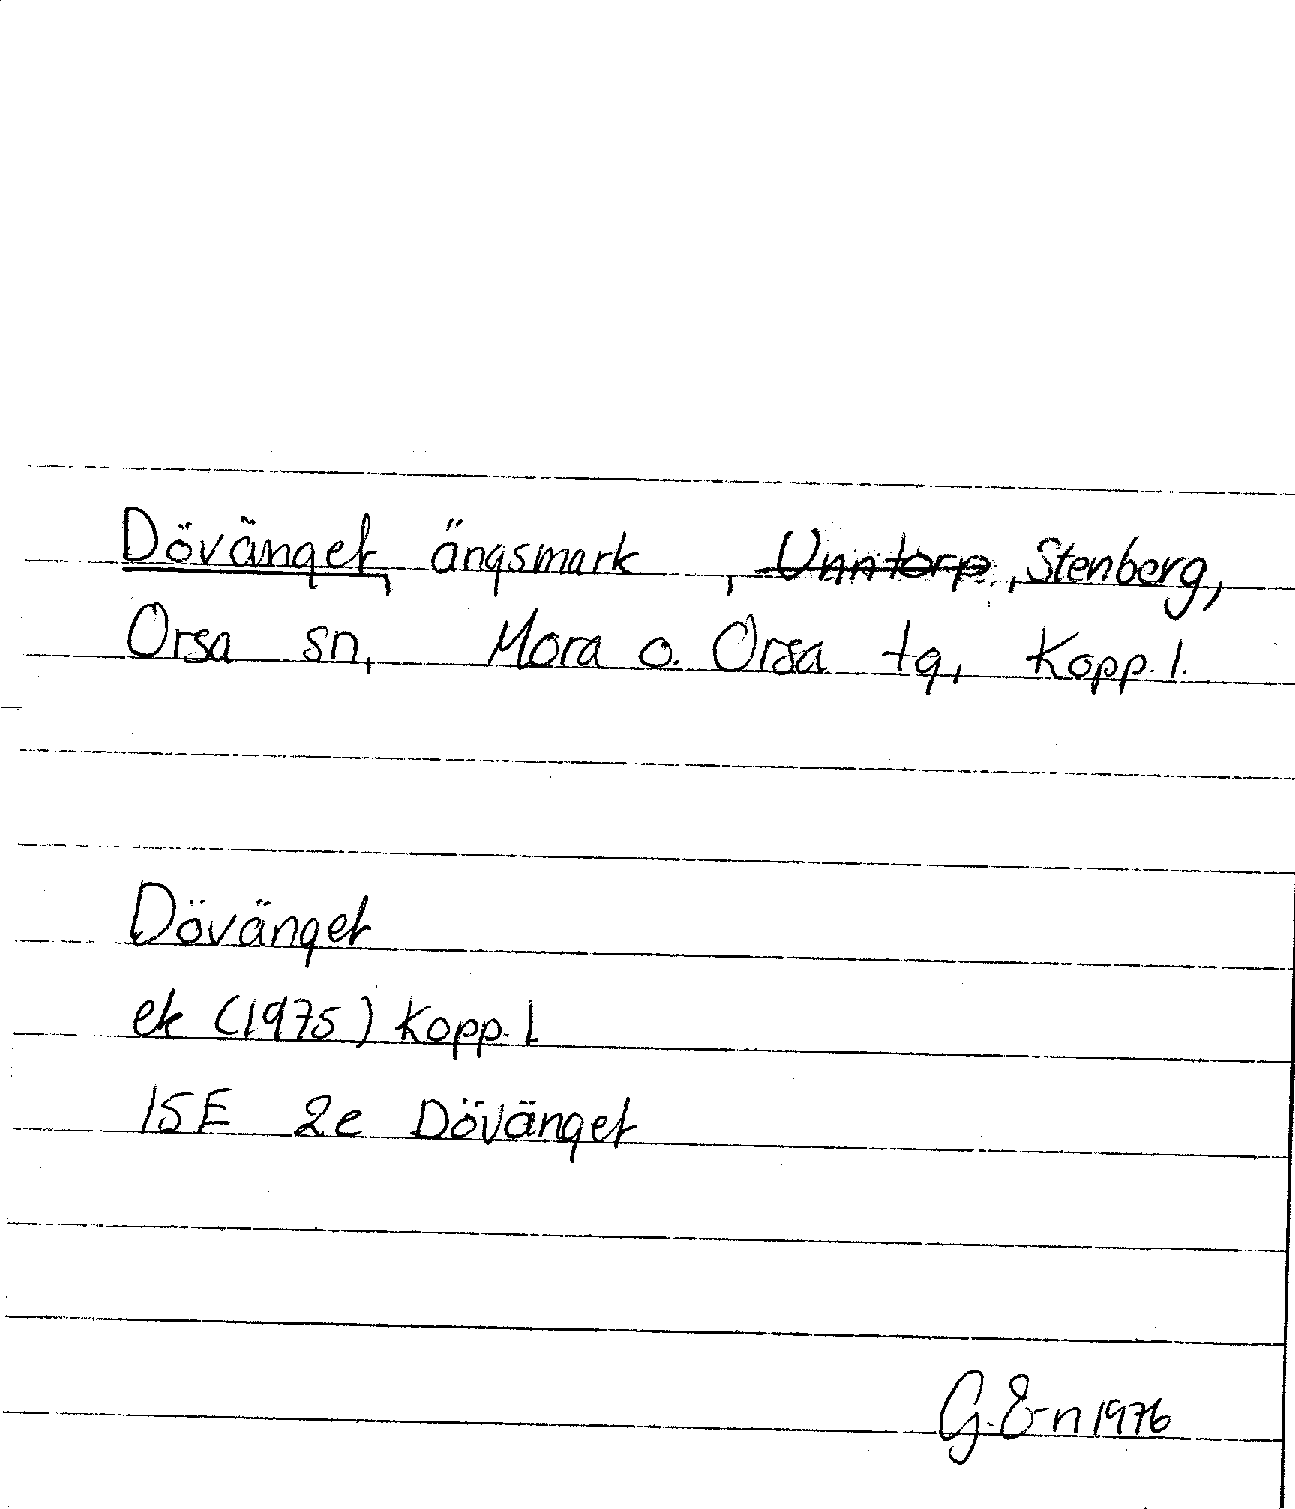 Dövänget, ängsmark , Unntorp., Stenberg,
Orsa sn, Mora o. Orsa tg, Kopp. l.
Dövänget
ek (1975) Kopp. l
15E 2e Dövänget
G. E-n 1976